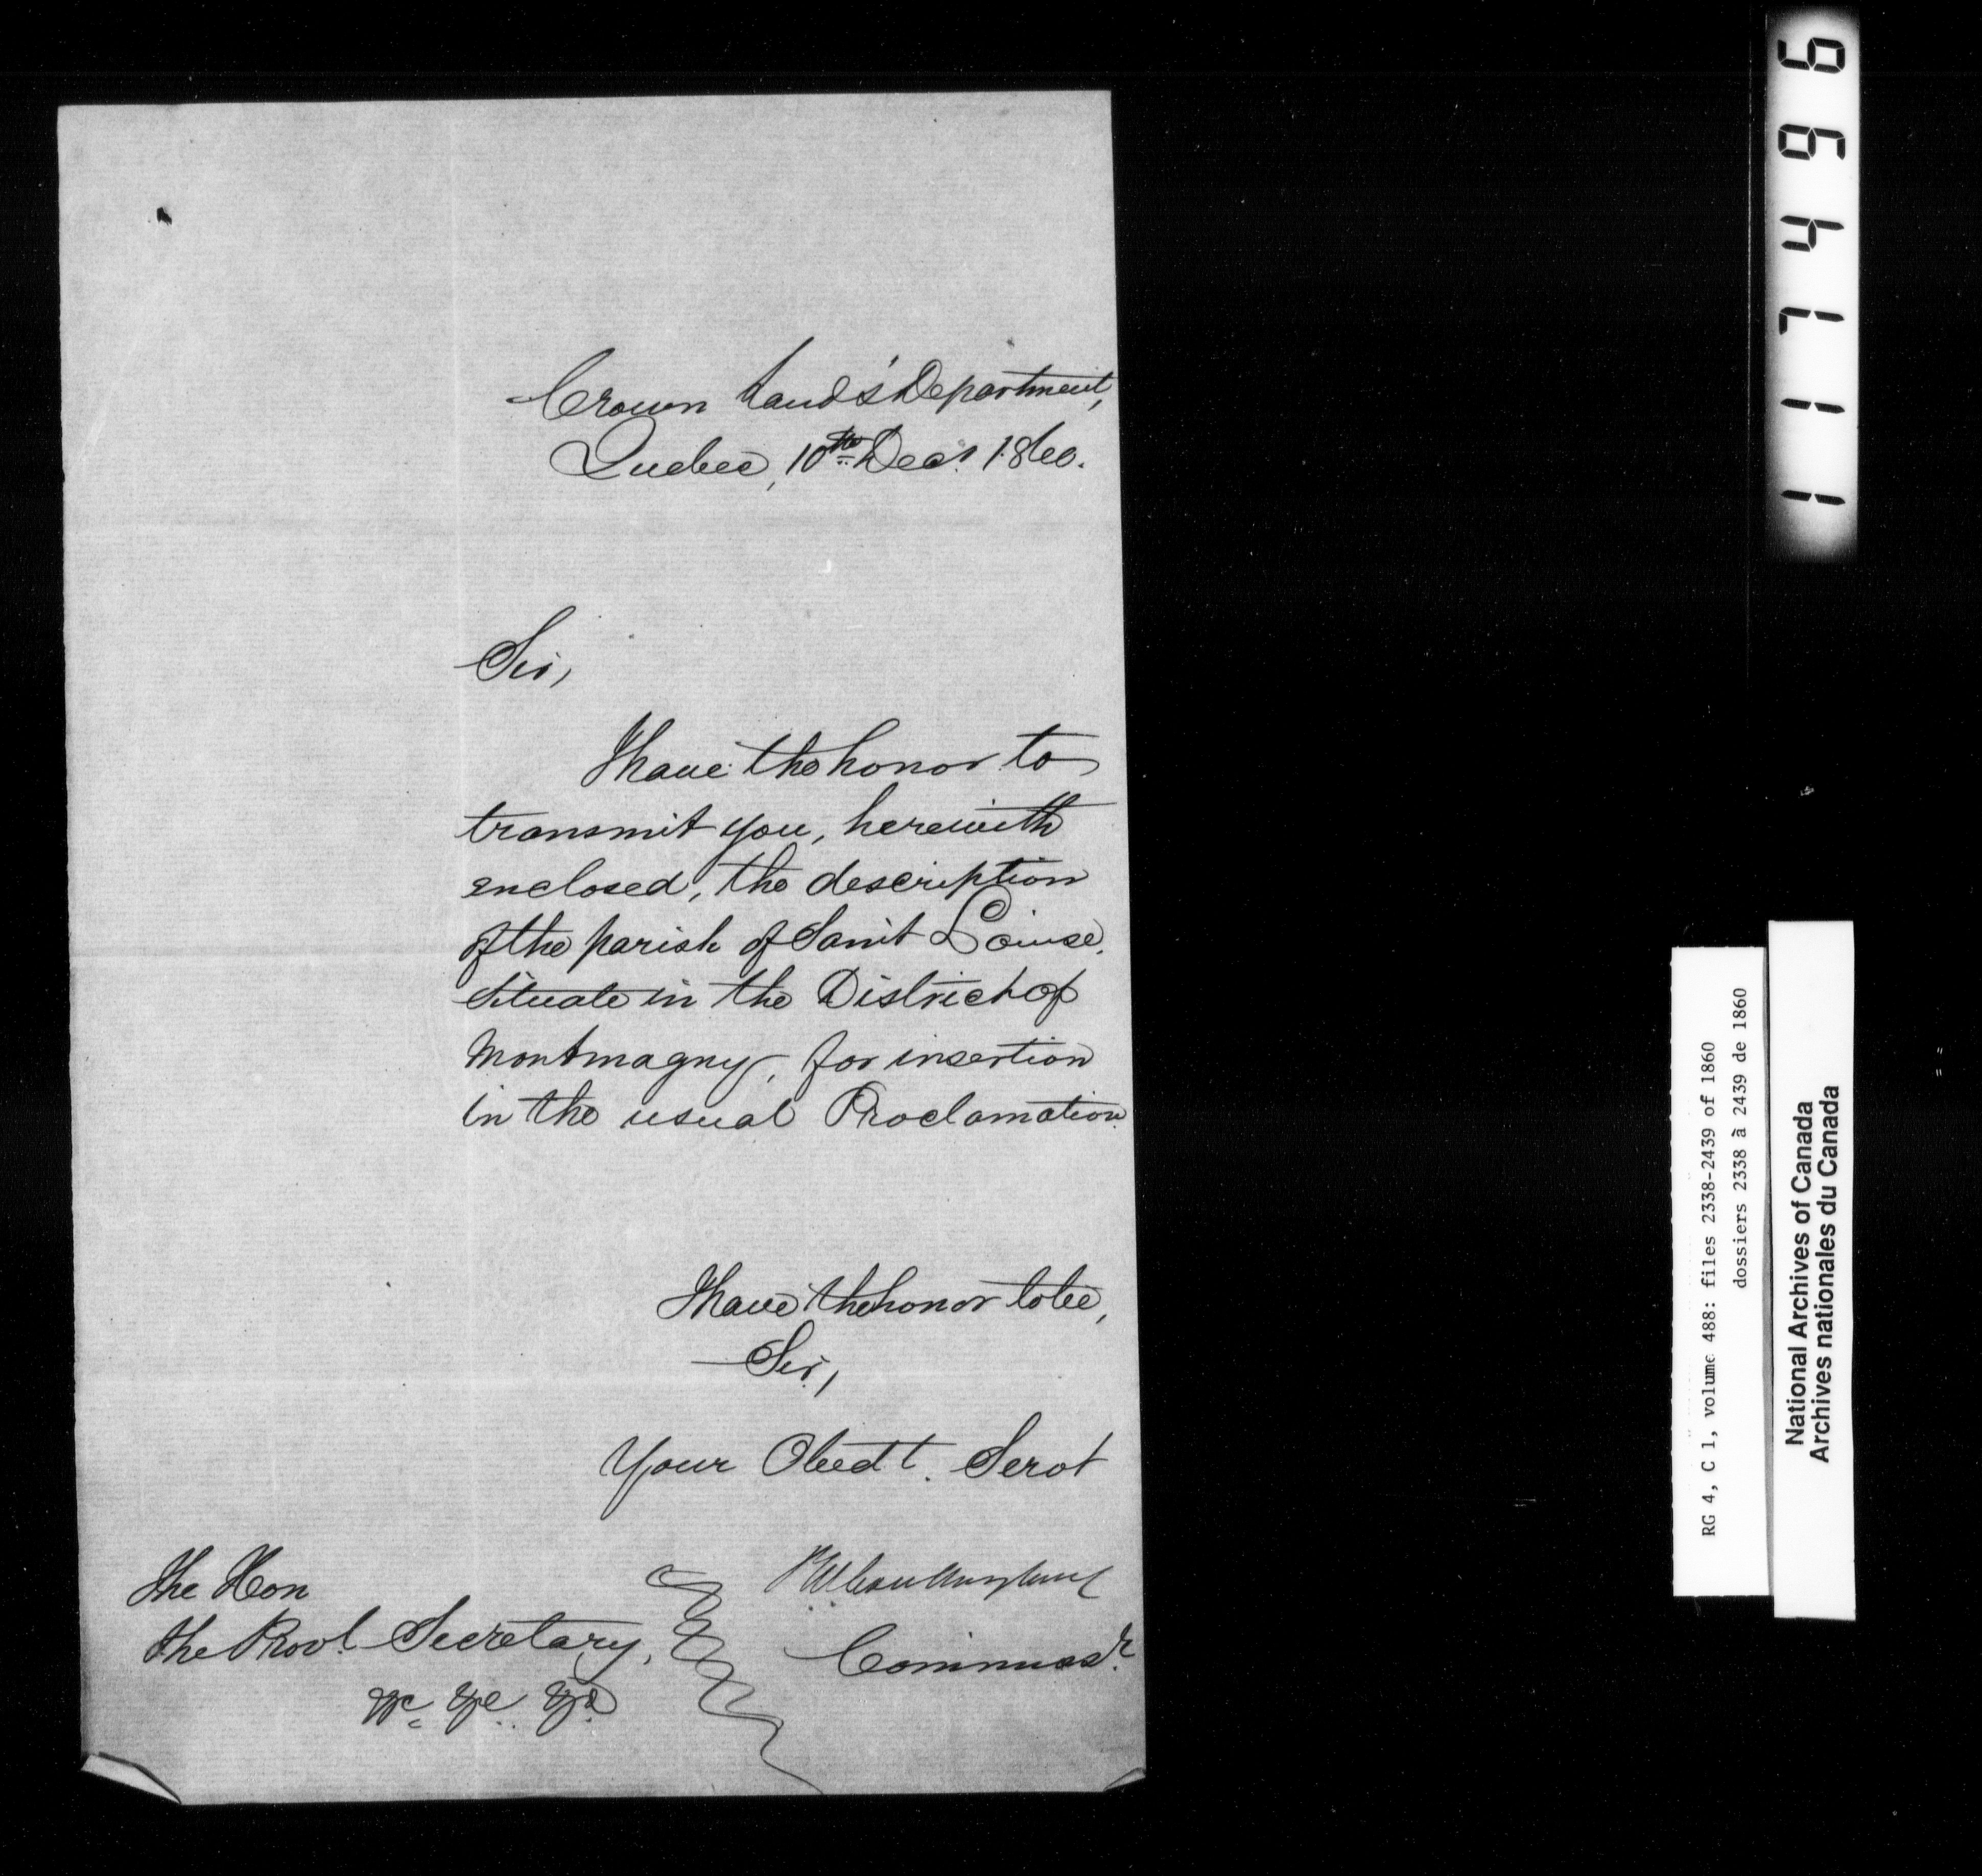 Crown Lands' Department,
Quebec, 10th Decr. 1860.
Sir,
I have the honor to
transmit you, herewith
enclosed, the description
of the parish of Saint Louise,
situate in the District of
Montmagny, for insertion
in the usual Proclamation.
I have the honor to be,
Sir,
Your Obedt. Servt
The Hon
the Provl. Secretary,
&c &c &c
Commissr.
117496
RG 4, C 1, volume 488: files 2338-2439 of 1860
dossiers 2338 à 2439 de 1860
National Archives of Canada
Archives nationales du Canada